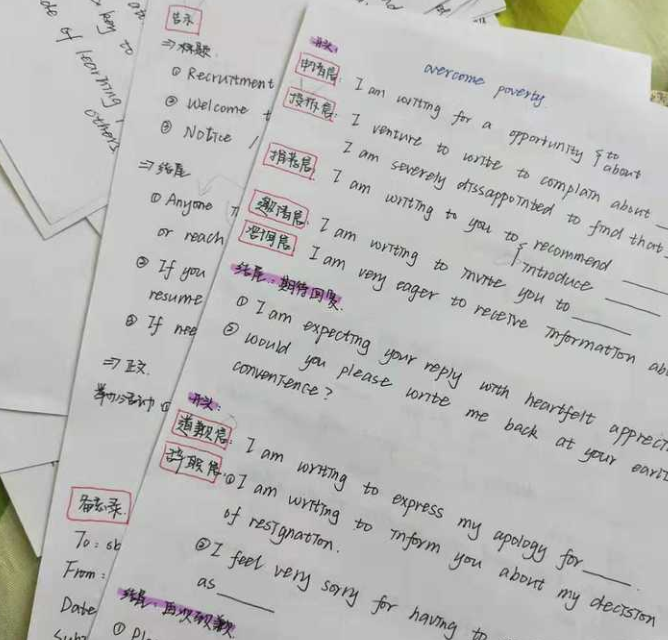 key to
de of learning
others
告示
⇒ 标题
① Recruitment
② Welcome
③ Notice /
⇒ 结尾
① Anyone
or reach
② If you
resume
③ If nee
⇒ 正文
举办活动 ①
备忘录
To: ob
From:
Date
Subj
overcome poverty
开头:
申请信: I am writing for a opportunity { to about
投诉信: I venture to write to complain about
I am severely disappointed to find that
推荐信: I am writing to you to { recommend ____
introduce ____
邀请信: I am writing to invite you to ____
咨询信: I am very eager to receive information abo
结尾: 期待回复
① I am expecting your reply with heartfelt appreci
② Would you please write me back at your earli
convenience?
开头:
道歉信: I am writing to express my apology for ____.
辞职信: ① I am writing to inform you about my decision
of resignation.
② I feel very sorry for having to
as ____
结尾: 再次致歉
① Plea